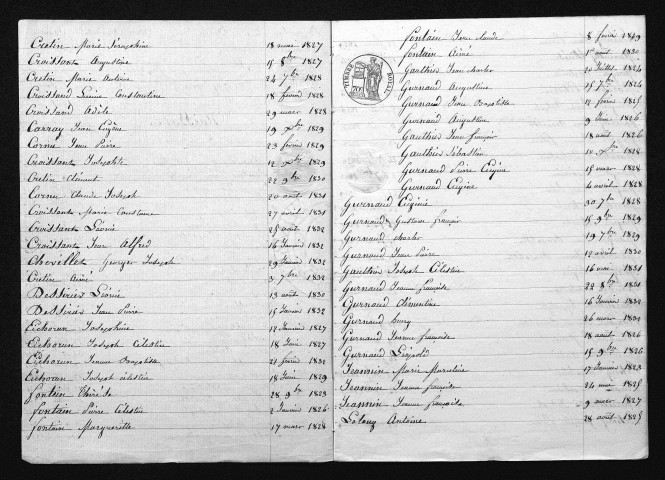 Cretin Marie Séraphine 18 mars 1827
Croissant Augustine 15 8bre 1827
Cretin Marie Antoine 24 7bre 1828
Croissand Louise Constantine 18 février 1828
Croissand Adèle 29 mars 1828
Carray Jean Eugène 19 Xbre 1829
Cornu Jean Pierre 23 février 1829
Croissant Josephte 12 Xbre 1829
Cretin Clément 22 9bre 1830
Cornu Claude Joseph 20 août 1831
Croissant Marie Constance 27 avril 1831
Croissant Léonie 25 août 1832
Croissant Jean Alfred 16 Janvier 1832
Chovillet Georges Joseph 29 Janvier 1832
Cretin Aimé 3 7bre 1832
Dessirier Léonie 13 août 1830
Dessirier Jean Pierre 15 Janvier 1832
Eichorun Josephine 12 Janvier 1827
Eichorun Joseph Célestin 18 1827
Eichorun Jeanne Baptiste 21 février 1832
Eichorun Joseph Célestin 18 1829
fontain Thérèse 28 9bre 1825
fontain Pierre Célestin 2 Janvier 1826
fontain Marguerite 17 mars 1828
fontain Jean Claude 8 1829
fontain Aimé août 1830
Gauthier Jean Charles 20 Juillet 1824
Gurnaud Augustine 15 7bre 1824
Gurnaud Jean Baptiste 12 février 1825
Gurnaud Augustin 9 1826
Gauthier Jean françois 18 août 1826
Gauthier Sébastien Xbre 1828
Gurnaud Pierre Eugène 15 mars 1828
Gurnaud Eugène 4 avril 1828
Gurnaud Eugénie 30 7bre 1828
Gurnaud Gustave françois 15 9bre 1829
Gurnaud Charles 19 7bre 1829
Gurnaud Jean Pierre 12 avril 1830
Gauthier Joseph Célestin 16 mai 1831
Gurnaud Jeanne françoise 22 8bre 1831
Gurnaud Clémentine 16 Janvier 1832
Gurnaud 26 mars 1832
Gurnaud Jeanne françoise 18 août 1826
Gurnaud Léopold 15 9bre 1826
Jeannin Marie 17 Janvier 1823
Jeannin Jeanne françoise 24 mai 1825
Jeannin Jeanne françoise 9 1827
Antoine 28 août 1825